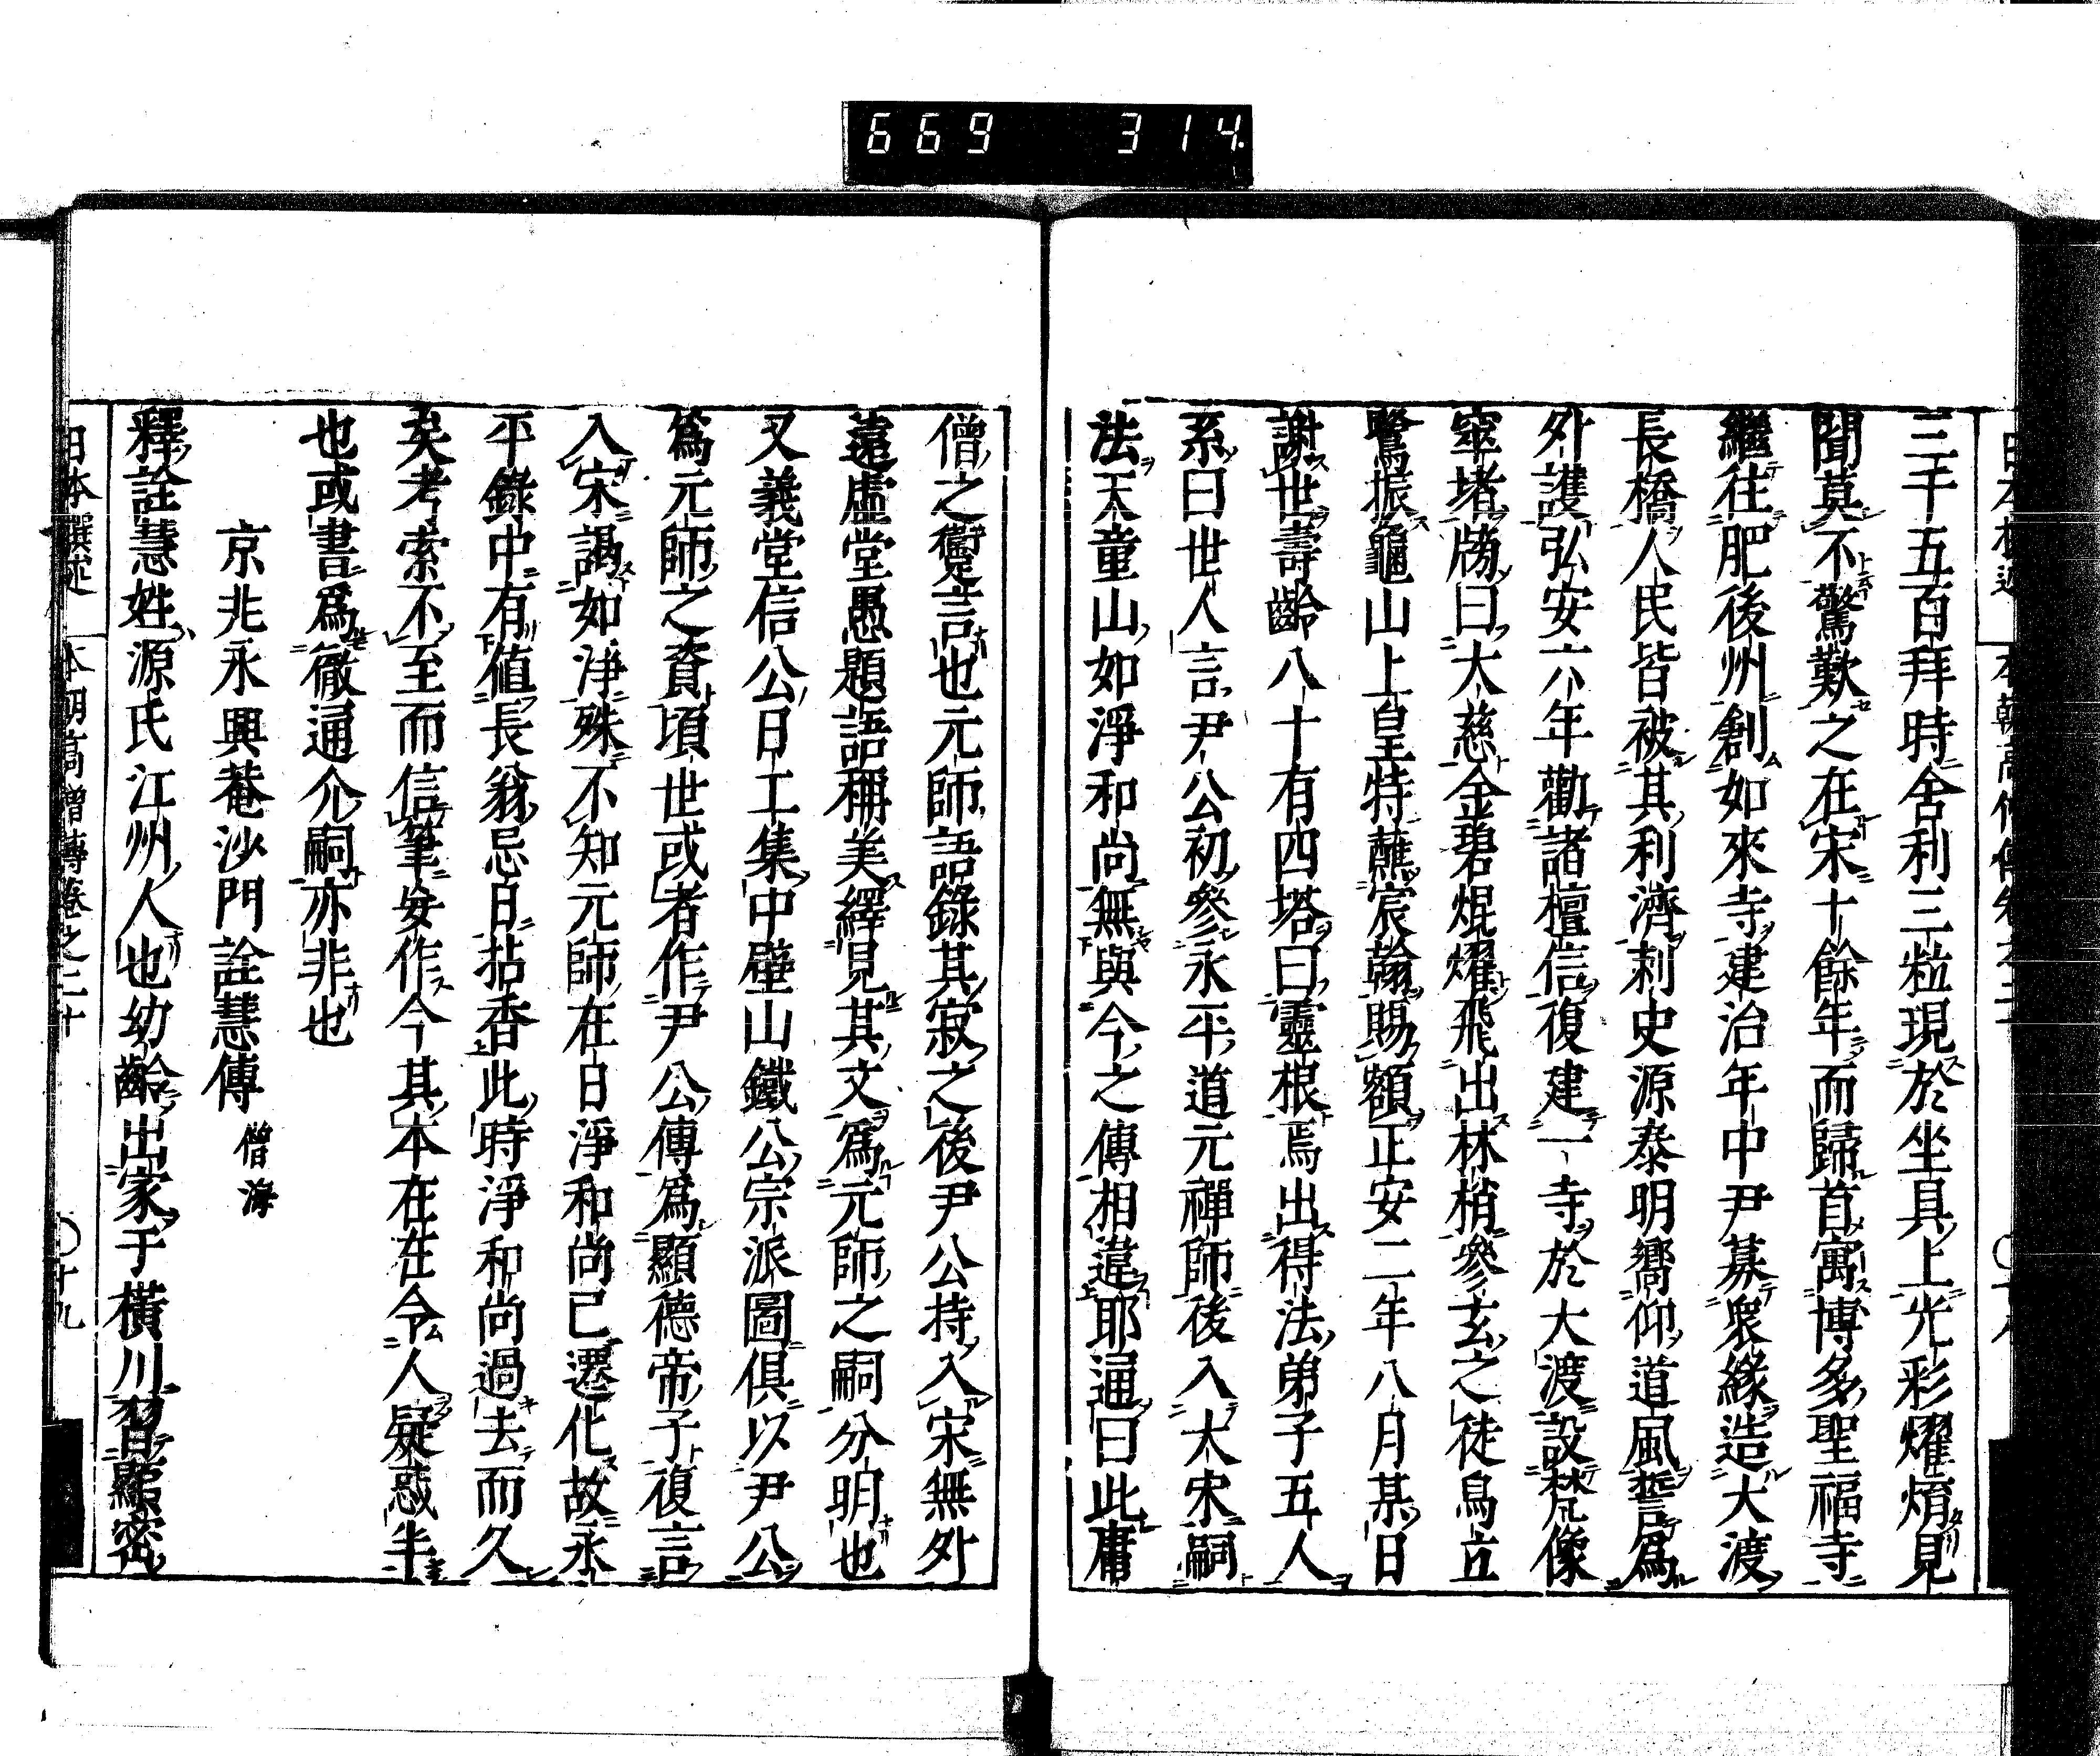 669 314
三千五百拜時舍利三粒現於坐具上光彩燿煟見
聞莫不驚歎之在宋十餘年而歸首寓博多聖福寺
繼往肥後州創如來寺建治年中尹募衆緣造大渡
長橋人民皆被其利濟刺史源泰明嚮仰道風誓爲
外護弘安六年勸諸檀信復建一寺於大渡設梵像
窣堵牓曰大慈金碧焜燿飛出林梢參玄之徒鳥立
鷺振龜山上皇特蘸宸翰賜額正安二年八月某日
謝世壽齡八十有四塔曰靈根焉出得法弟子五人
系曰世人言尹公初參永平道元禪師後入太宋嗣
法天童山如淨和尚無與今之傳相違耶通曰此庸
僧之讆言也元師語錄其寂之後尹公持入宋無外
遠虛堂愚題語稱美繹見其文爲元師之嗣分明也
又義堂信公日工集中壁山鐵公宗派圖俱以尹公
爲元師之資頃世或者作尹公傳爲顯德帝子復言
入宋謁如淨殊不知元師在日淨和尚已遷化故永
平錄中有値長翁忌日拈香此時淨和尚過去而久
矣考索不至而信筆妄作今其本在在令人疑惑半
也或書爲徹通介嗣亦非也
京兆永興菴沙門詮慧傳 僧海
釋詮慧姓源氏江州人也幼齡出家于橫川習顯密
日本撰述 本朝高僧傳卷之二十 〇十九